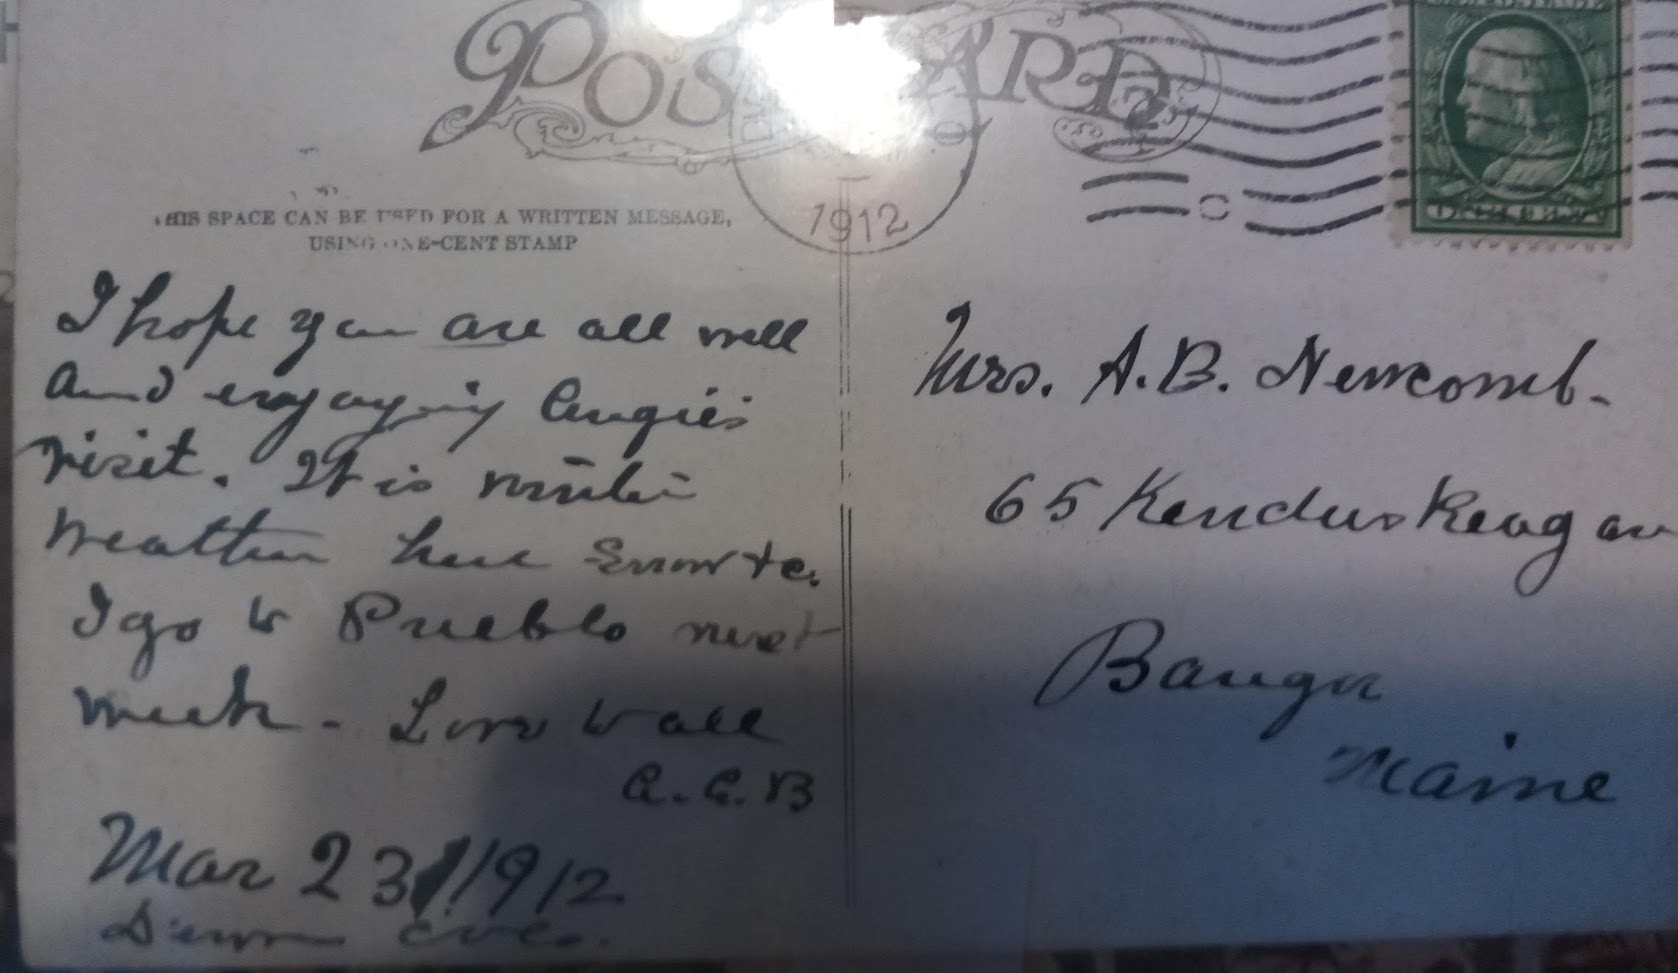 POST CARD
THIS SPACE CAN BE USED FOR A WRITTEN MESSAGE,
USING ONE-CENT STAMP
1912
I hope you are all well
and enjoying Angie's
visit. It is winter
weather here snow &c.
I go to Pueblo next
week - Love to all
A.C.B
Mar 23/1912
Mrs. A.B. Newcomb.
65 Kenduskeag av
Bangor
Maine